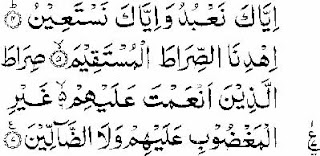 اِيَّاكَ نَعْبُدُ وَاِيَّاكَ نَسْتَعِيْنُ ۝۴
اِهْدِنَا الصِّرَاطَ الْمُسْتَقِيْمَ ۝۵ صِرَاطَ
الَّذِيْنَ اَنْعَمْتَ عَلَيْهِمْ ۝۶ غَيْرِ
الْمَغْضُوْبِ عَلَيْهِمْ وَلَا الضَّآلِّيْنَ ۝۷